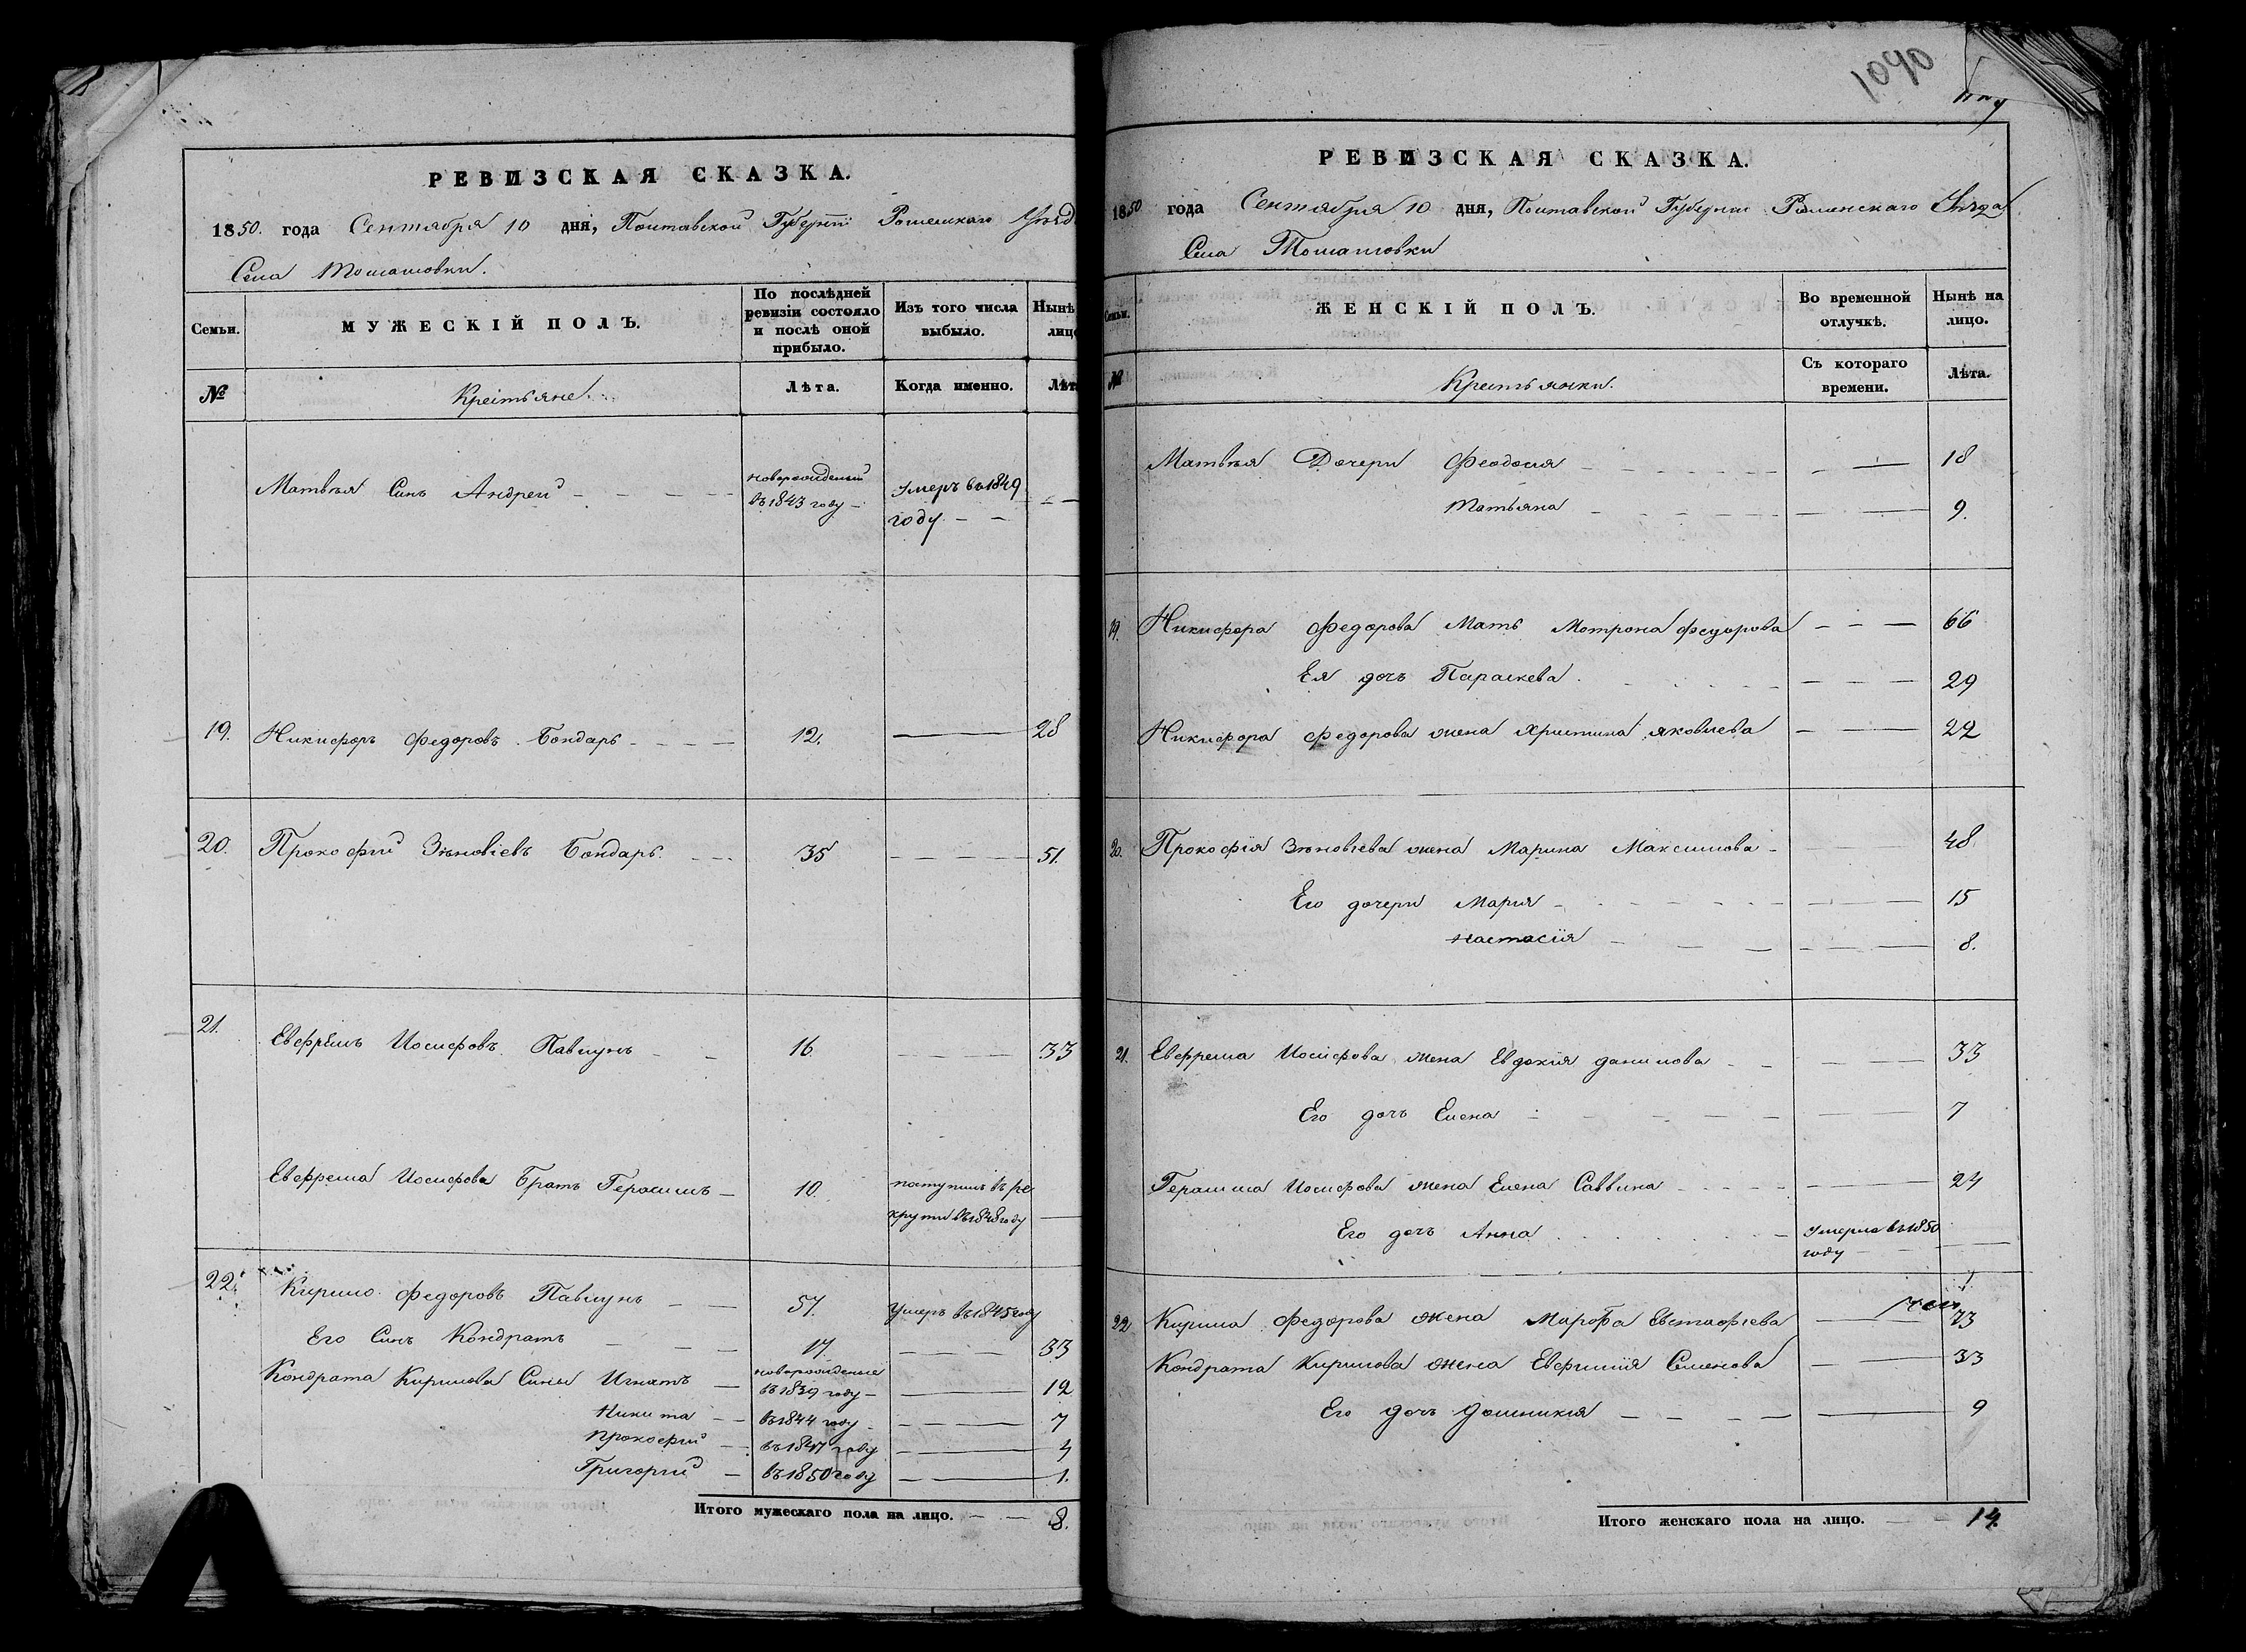 РЕВИЗСКАЯ СКАЗКА.
1850. года Сентября 10 дня, Полтавской Губернии Роменскаго Уѣзд
Села Томашовки.
Семьи.
МУЖЕСКІЙ ПОЛЪ.
По послѣдней ревизіи состояло и послѣ оной прибыло.
Изъ того числа выбыло.
Нынѣ лицо
№
Крестьяне.
Лѣта.
Когда именно.
Лѣт
Матвѣя Сынъ Андрей новорожденый въ 1843 году умеръ въ 1849 году
19. Никифоръ Федоровъ Бондарь 12. 28
20. Прокофий Зѣновіевъ Бондарь. 35 51.
21. Евфремъ Иосифовъ Павлунъ 16 33
Евфрема Иосифова Братъ Герасимъ 10 поступилъ въ ре
круты въ 1848 году
22. Кирило Федоровъ Павлунъ 57. умеръ въ 1845 году
Его Сынъ Кондратъ 17. 33
Кондрата Кирилова Сыны Игнатъ новорожденые въ 1839 году 12
Никита въ 1844 году 7
Прокофий въ 1847 году 4
Григорий въ 1850 году 1.
Итого мужескаго пола на лицо. 8.
1090
РЕВИЗСКАЯ СКАЗКА.
1850 года Сентября 10 дня, Полтавской Губернии Роменскаго Уѣзда
Села Томашовки
Семьи.
ЖЕНСКІЙ ПОЛЪ.
Во временной отлучкѣ.
Нынѣ на лицо.
№
Крестьянки.
Съ котораго времени.
Лѣта.
Матвѣя Дочери Феодосия 18
Татьяна 9.
19. Никифора Федорова Мать Мотрона Федорова 66
Ея дочь Параскева. 29
Никифора Федорова жена Христина Яковлева 22
20. Прокофія Зѣновіева жена Марина Максимова 48.
Его дочери Мария 15
Настасія 8.
21. Евфрема Иосифова жена Евдокія Данилова 33
Его дочь Елена 7
Герасима Иосифова жена Елена Саввина 24
Его дочь Анна умерла въ 1850 году
22 Кирила Федорова жена Марфа Евстафіева 73
Кондрата Кирилова жена Евфимія Семенова 33
Его дочь Домникія 9
Итого женскаго пола на лицо. 14.